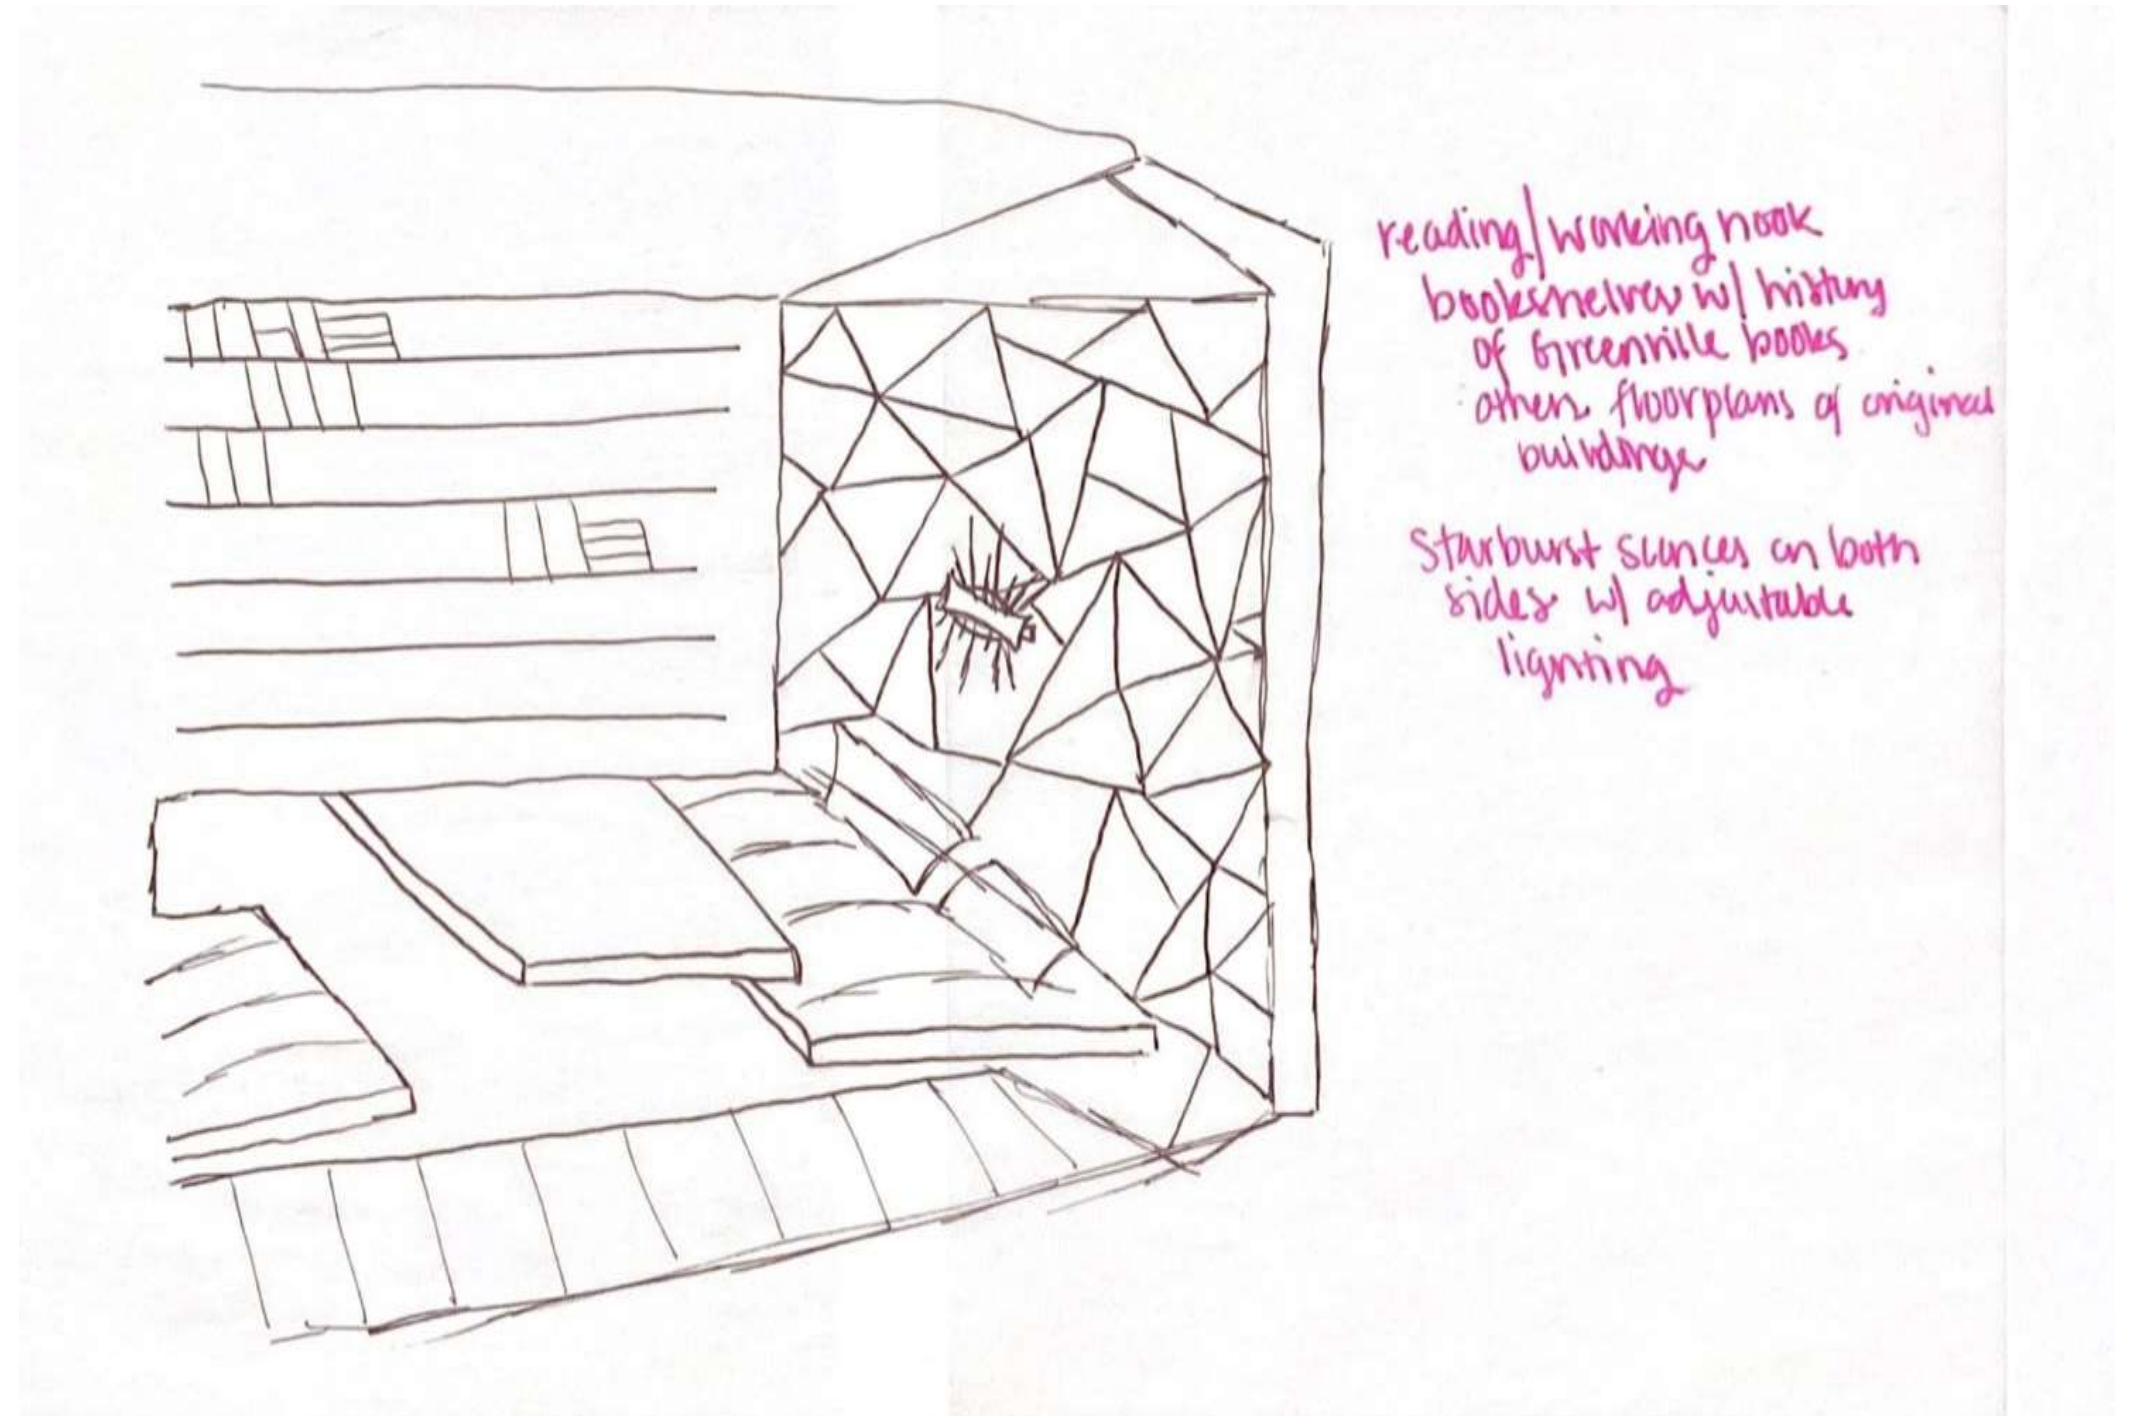 reading/working nook
bookshelves w/ history
of Greenville books
other floorplans of original
buildings
Starburst sconces on both
sides w/ adjustable
lighting